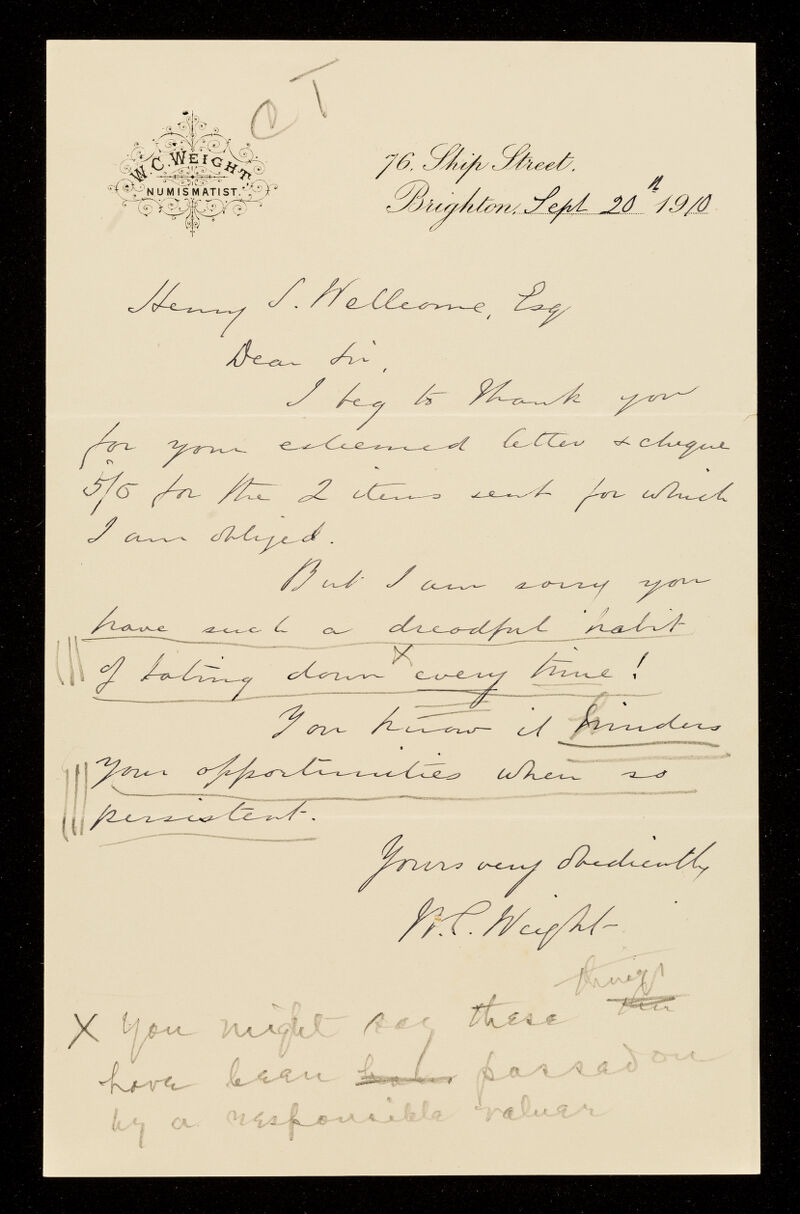 CT
W. C. WEIGHT,
NUMISMATIST.
76, Ship Street.
Brighton, Sept 20th 1910
Henry S. Wellcome, Esq
Dear Sir,
I beg to thank you
for your esteemed letter & cheque
5/5 for the 2 items sent for which
I am obliged.
But I am sorry you
have such a dreadful habit
of taking down X every time!
You know it hinders
your opportunities when so
persistent.
Yours very obediently
W.C. Weight
X You might say these things
have been passed on
by a responsible valuer